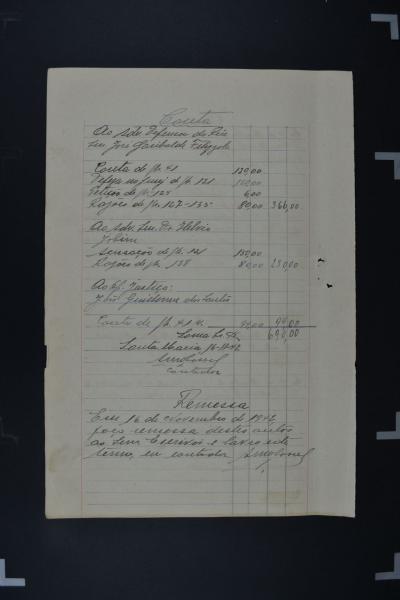 Conta
Ao Adv. Defensor do Réu
Snr José Garibaldi Filizzola
Conta de fls. 41 120,00
Defeza no Jury de fls. 121 160,00
Petição de fls. 125 6,00
Razões de fls. 127-135 80,00 366,00
Ao Adv. Snr. Dr. Helvio
Jobim
Acusação de fls. 121 150,00
Razões de fls. 138 80,00 230,00
Ao Of. Justiça:
João Guilherme dos Santos
Conta de fls. 41 v. 94,00 94,00
Soma Cr. 690,00
Santa Maria 16-11-42
Contador
Remessa
Em 16 de Novembro de 1942
faço remessa destes autos
ao Snr. Escrivão e lavro este
termo, eu contador